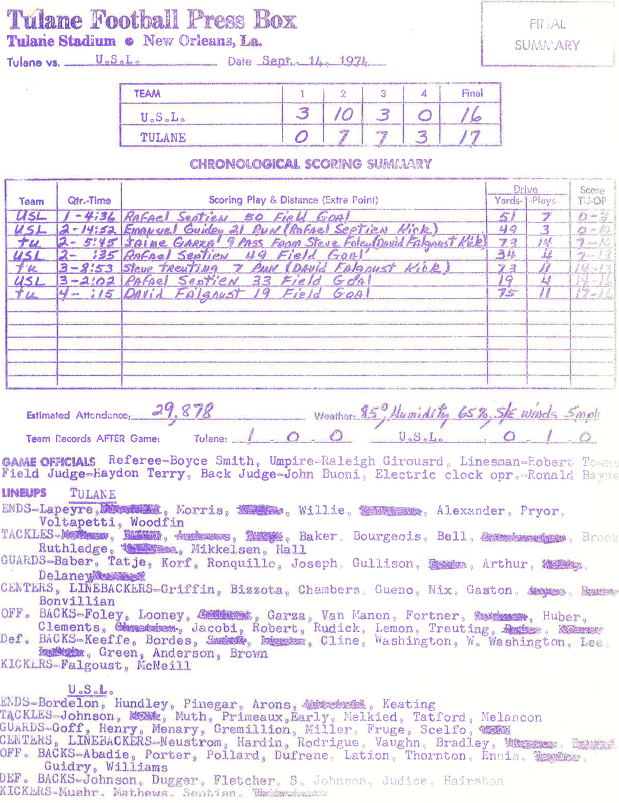 Tulane Football Press Box
Tulane Stadium • New Orleans, La.
FINAL
SUMMARY
Tulane vs. U.S.L. Date Sept. 14, 1974
TEAM 1 2 3 4 Final
U.S.L. 3 10 3 0 16
TULANE 0 7 7 3 17
CHRONOLOGICAL SCORING SUMMARY
Team Qtr.-Time Scoring Play & Distance (Extra Point) Drive Yards-Plays Score TU-OP
USL 1-4:36 Rafael Septien 50 Field Goal 51 7 0-3
USL 2-14:52 Emanuel Guidry 21 Run (Rafael Septien Kick) 49 3 0-10
tu 2-5:45 Jaime Garza 9 Pass From Steve Foley (David Falgoust Kick) 73 14 7-10
USL 2-:35 Rafael Septien 49 Field Goal 34 4 7-13
tu 3-8:53 Steve Treuting 7 Run (David Falgoust Kick) 73 11 14-13
USL 3-2:02 Rafael Septien 33 Field Goal 19 4 14-16
tu 4-:15 David Falgoust 19 Field Goal 75 11 17-16
Estimated Attendance: 29,878 Weather: 85° Humidity 65%, S/E winds 5mph
Team Records AFTER Game: Tulane: 1 0 0 U.S.L. 0 1 0
GAME OFFICIALS Referee-Boyce Smith, Umpire-Raleigh Girouard, Linesman-Robert
Field Judge-Haydon Terry, Back Judge-John Buoni, Electric clock opr.-Ronald
LINEUPS TULANE
ENDS-Lapeyre, Morris, Willie, Alexander, Pryor,
Voltapetti, Woodfin
TACKLES- Baker, Bourgeois, Bell, Brock
Ruthledge, Mikkelsen, Hall
GUARDS-Baber, Tatje, Korf, Ronquillo, Joseph, Gullison, Arthur,
Delaney
CENTERS, LINEBACKERS-Griffin, Bizzota, Chambers, Gueno, Nix, Gaston,
Bonvillian
OFF. BACKS-Foley, Looney, Garza, Van Manen, Fortner, Huber,
Clements, Jacobi, Robert, Rudick, Lemon, Treuting,
Def. BACKS-Keeffe, Bordes, Cline, Washington, W. Washington, Lee,
Green, Anderson, Brown
KICKERS-Falgoust, McNeill
U.S.L.
ENDS-Bordelon, Hundley, Pinegar, Arons, Keating
TACKLES-Johnson, Muth, Primeaux, Early, Melkied, Tatford, Melancon
GUARDS-Goff, Henry, Menary, Gremillion, Miller, Fruge, Scelfo,
CENTERS, LINEBACKERS-Neustrom, Hardin, Rodrigue, Vaughn, Bradley,
OFF. BACKS-Abadie, Porter, Pollard, Dufrene, Lation, Thornton, Ennis,
Guidry, Williams
DEF. BACKS-Johnson, Dugger, Fletcher, S. Johnson, Judice, Hairston
KICKERS-Muehr, Mathews, Septien,